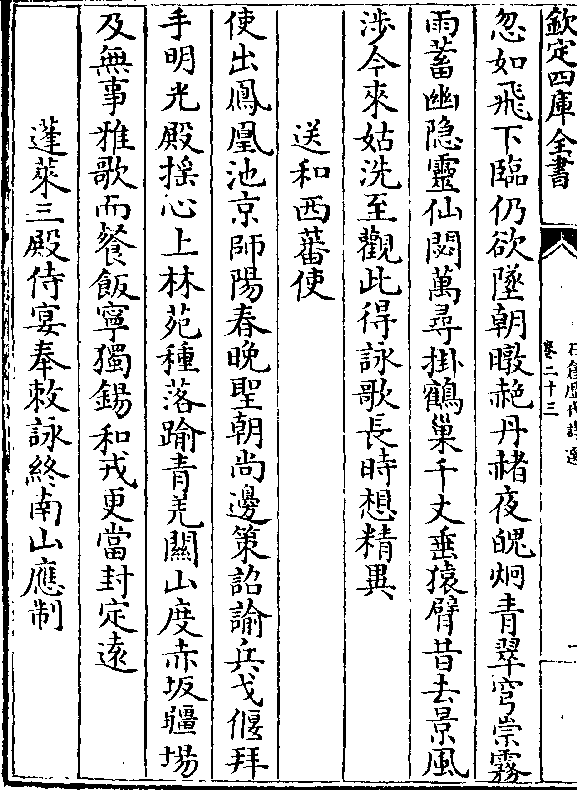 欽定四庫全書
卷二十三
忽如飛下臨仍欲墜朝暾赩丹赭夜魄炯青翠穹崇霧
雨蓄幽隐靈仙閟萬尋掛鶴巢千丈垂猿臂昔去景風
涉今來姑洗至觀此得詠歌長時想精異
送和西蕃使
使出鳳凰池京師陽春晚聖朝尚邊策詔諭兵戈偃拜
手明光殿揺心上林苑種落踰青羌關山度赤坂疆埸
及無事雅歌而餐飯寧獨錫和戎更當封定遠
蓬萊三殿侍宴奉敕詠終南山應制